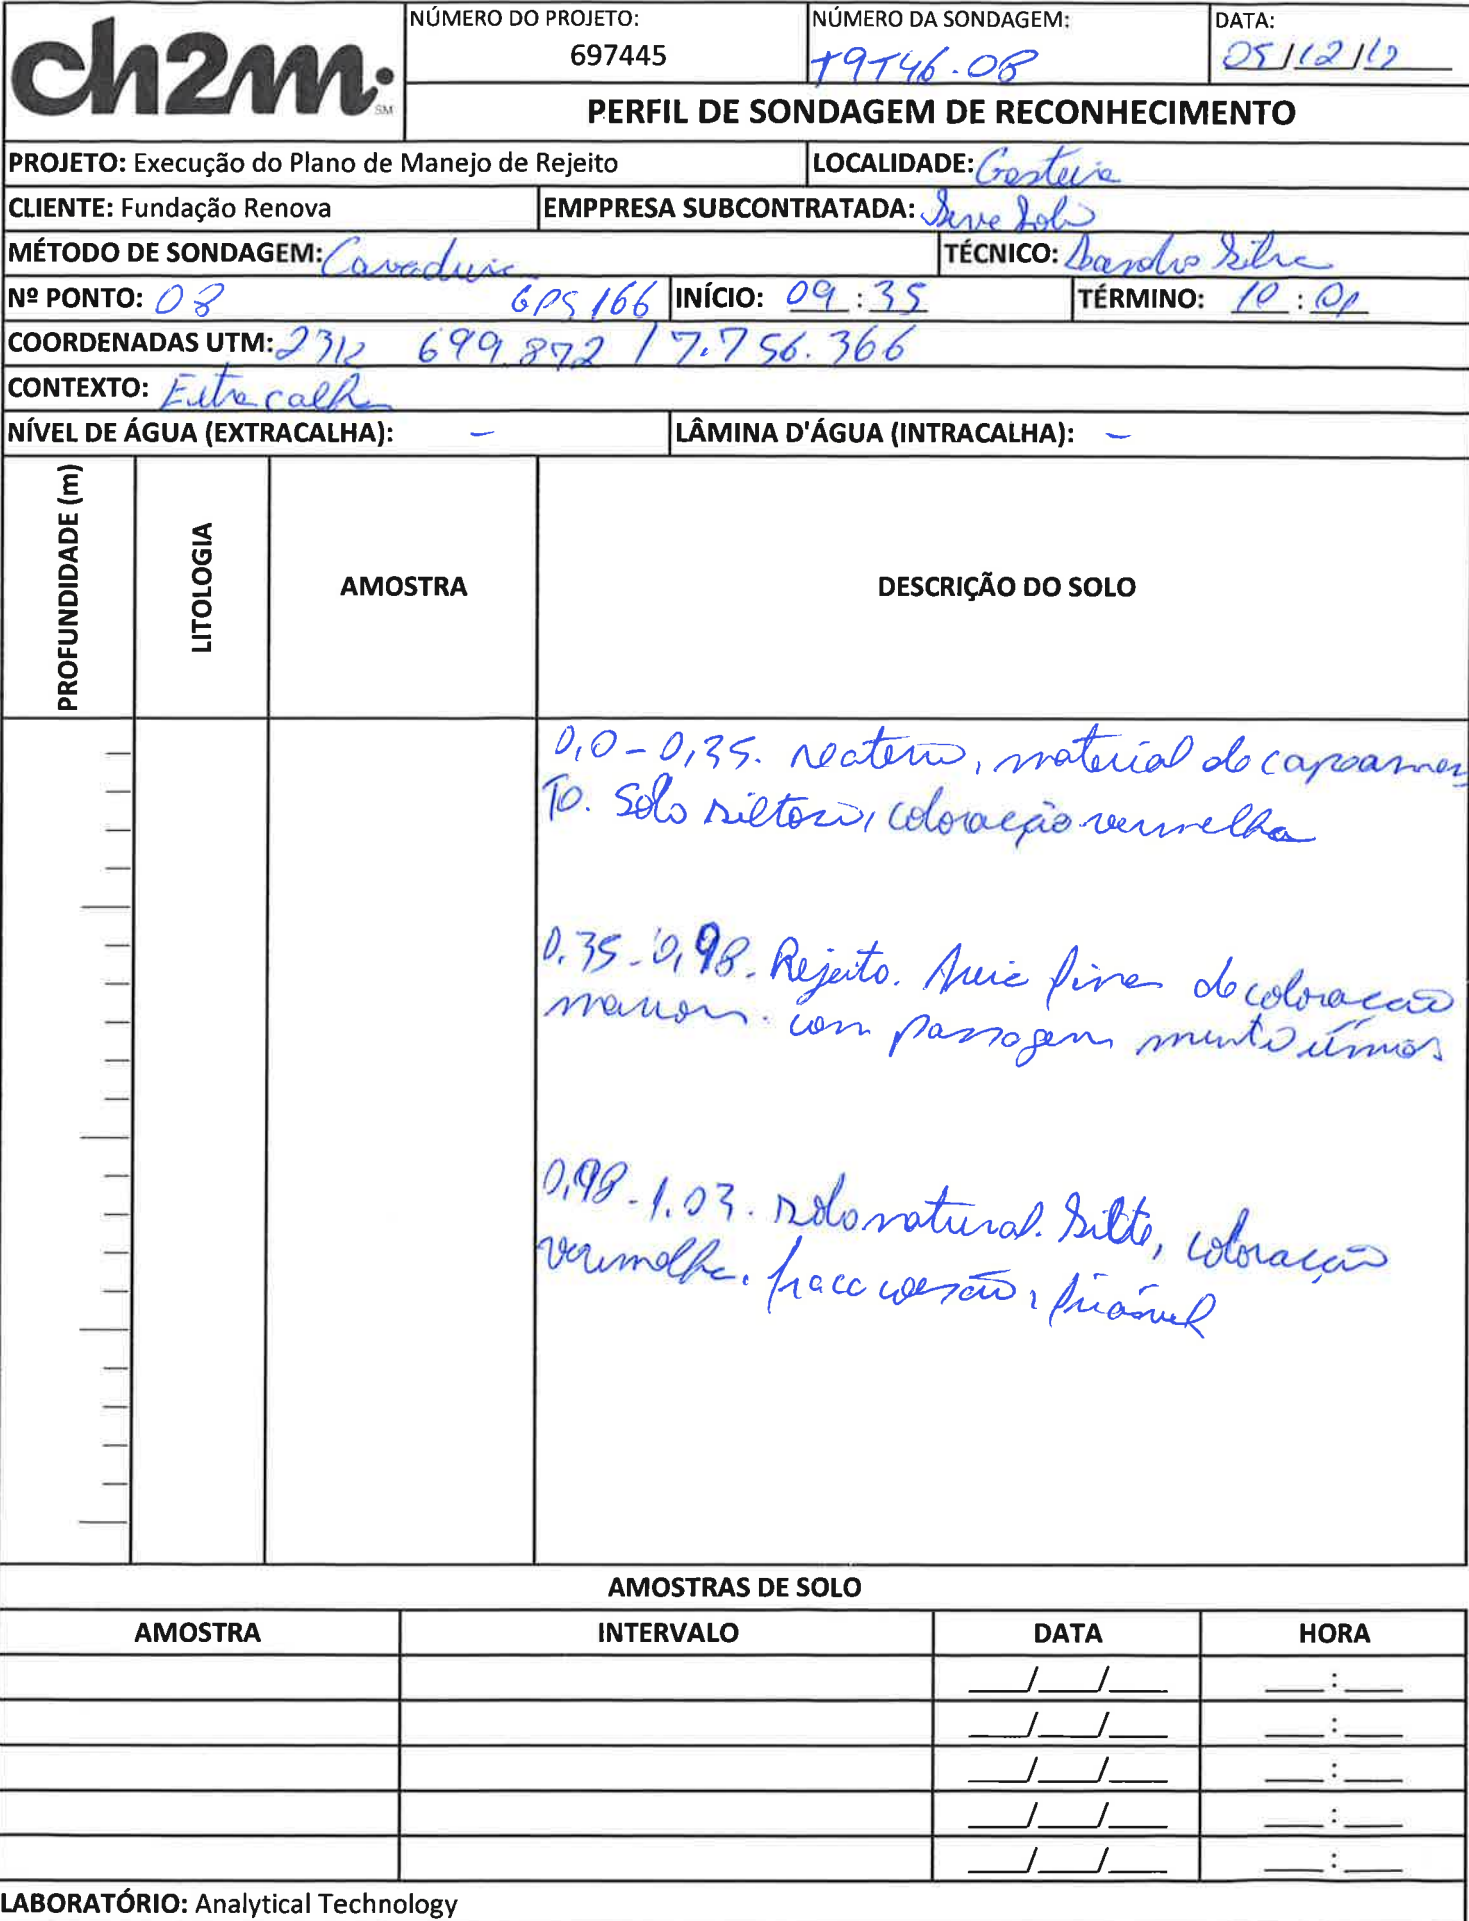 ch2m:
SM
NÚMERO DO PROJETO:
697445
NÚMERO DA SONDAGEM:
T9T46.08
DATA:
05/12/17
PERFIL DE SONDAGEM DE RECONHECIMENTO
PROJETO: Execução do Plano de Manejo de Rejeito
LOCALIDADE: Gesteira
CLIENTE: Fundação Renova
EMPPRESA SUBCONTRATADA:
MÉTODO DE SONDAGEM: Cavadeira
TÉCNICO: Leandro Silva
Nº PONTO: 08 GPS 166
INÍCIO: 09:35
TÉRMINO: 10:01
COORDENADAS UTM: 23K 699.872 / 7.756.366
CONTEXTO: Extracalha
NÍVEL DE ÁGUA (EXTRACALHA): -
LÂMINA D'ÁGUA (INTRACALHA): -
PROFUNDIDADE (m)
LITOLOGIA
AMOSTRA
DESCRIÇÃO DO SOLO
0,0-0,35. reaterro, material do capeamen
to. Solo siltoso, coloração vermelha
0.35-0,98. Rejeito. Areia fina de coloração
marrom. com passagem muito úmios
0,98-1.03. solo natural. Silte, coloração
vermelha. fraca coesão, friável
AMOSTRAS DE SOLO
AMOSTRA INTERVALO DATA HORA
___/___/___ ___:___
___/___/___ ___:___
___/___/___ ___:___
___/___/___ ___:___
___/___/___ ___:___
LABORATÓRIO: Analytical Technology